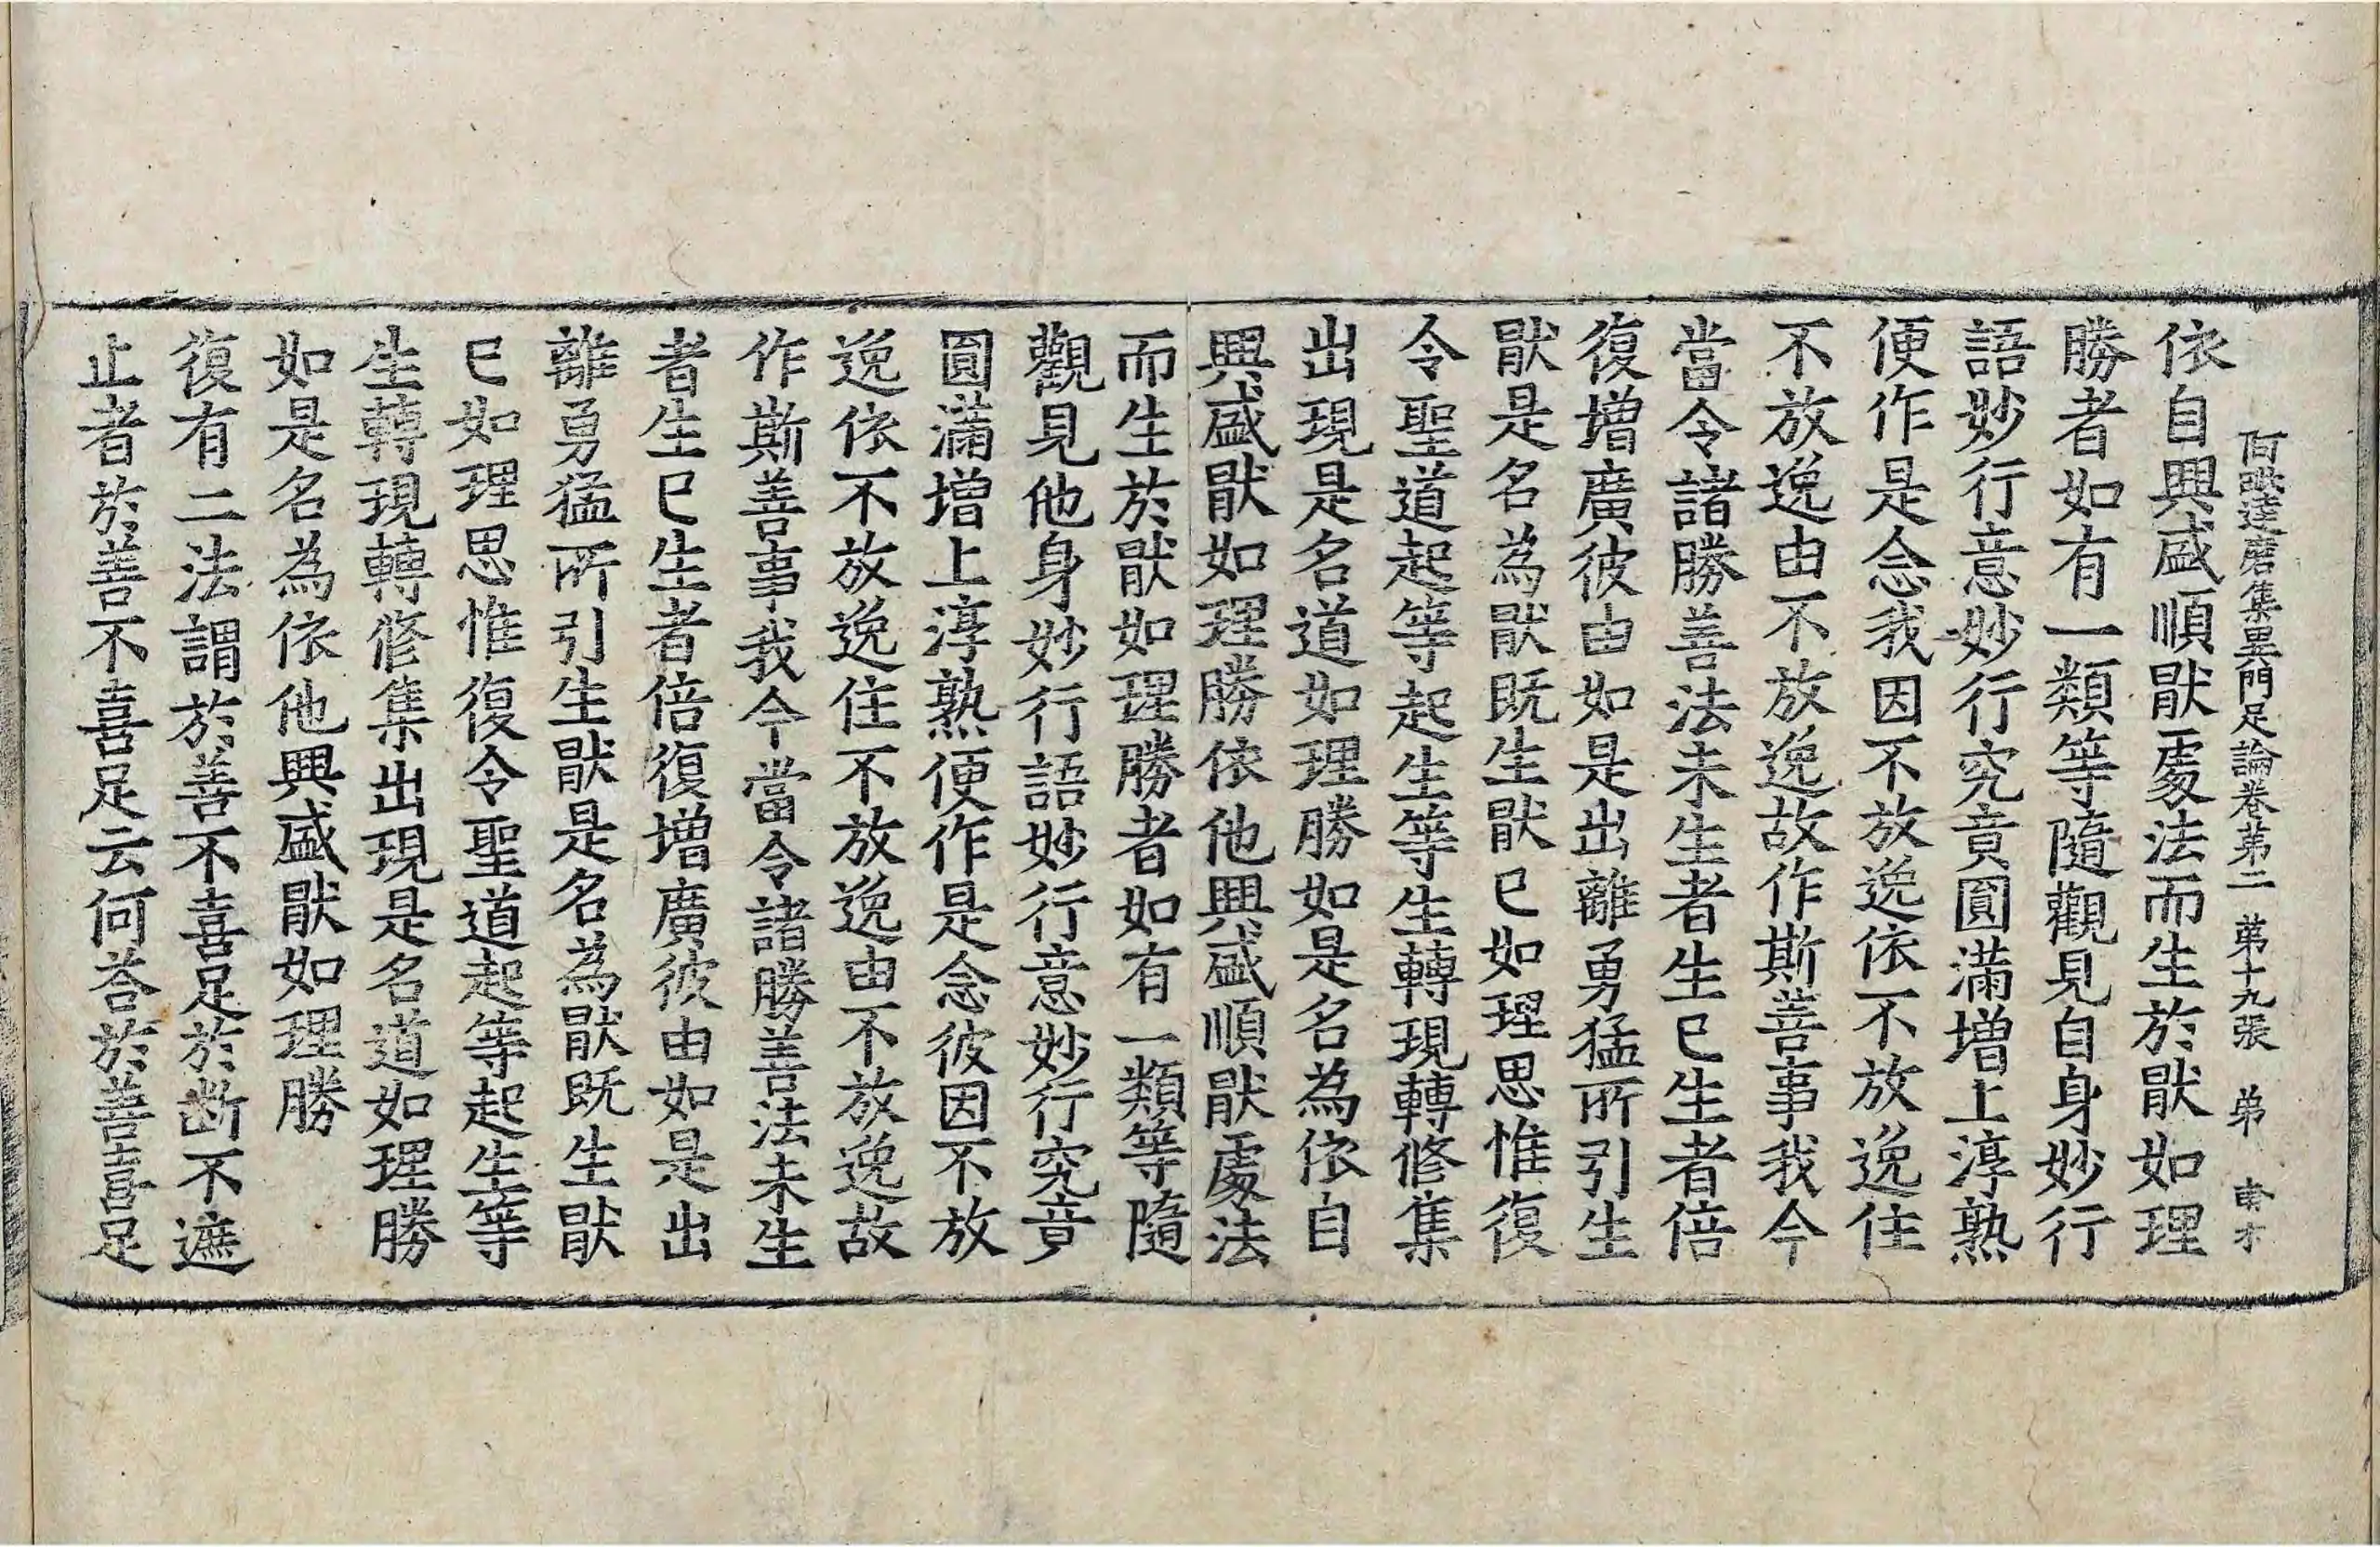 阿毗達磨集異門足論卷第二 第十九張 弟
依自興盛順猒處法而生於猒如理
勝者如有一類等隨觀見自身妙行
語妙行意妙行究竟圓滿增上淳熟
便作是念我因不放逸依不放逸住
不放逸由不放逸故作斯善事我今
當令諸勝善法未生者生已生者倍
復增廣彼由如是出離勇猛所引生
猒是名為猒既生猒已如理思惟復
令聖道起等起生等生轉現轉修集
出現是名道如理勝如是名為依自
興盛猒如理勝依他興盛順猒處法
而生於猒如理勝者如有一類等隨
觀見他身妙行語妙行意妙行究竟
圓滿增上淳熟便作是念彼因不放
逸依不放逸住不放逸由不放逸故
作斯善事我今當令諸勝善法未生
者生已生者倍復增廣彼由如是出
離勇猛所引生猒是名為猒既生猒
已如理思惟復令聖道起等起生等
生轉現轉修集出現是名道如理勝
如是名為依他興盛猒如理勝
復有二法謂於善不喜足於断不遮
止者於善不喜足云何荅於善喜足